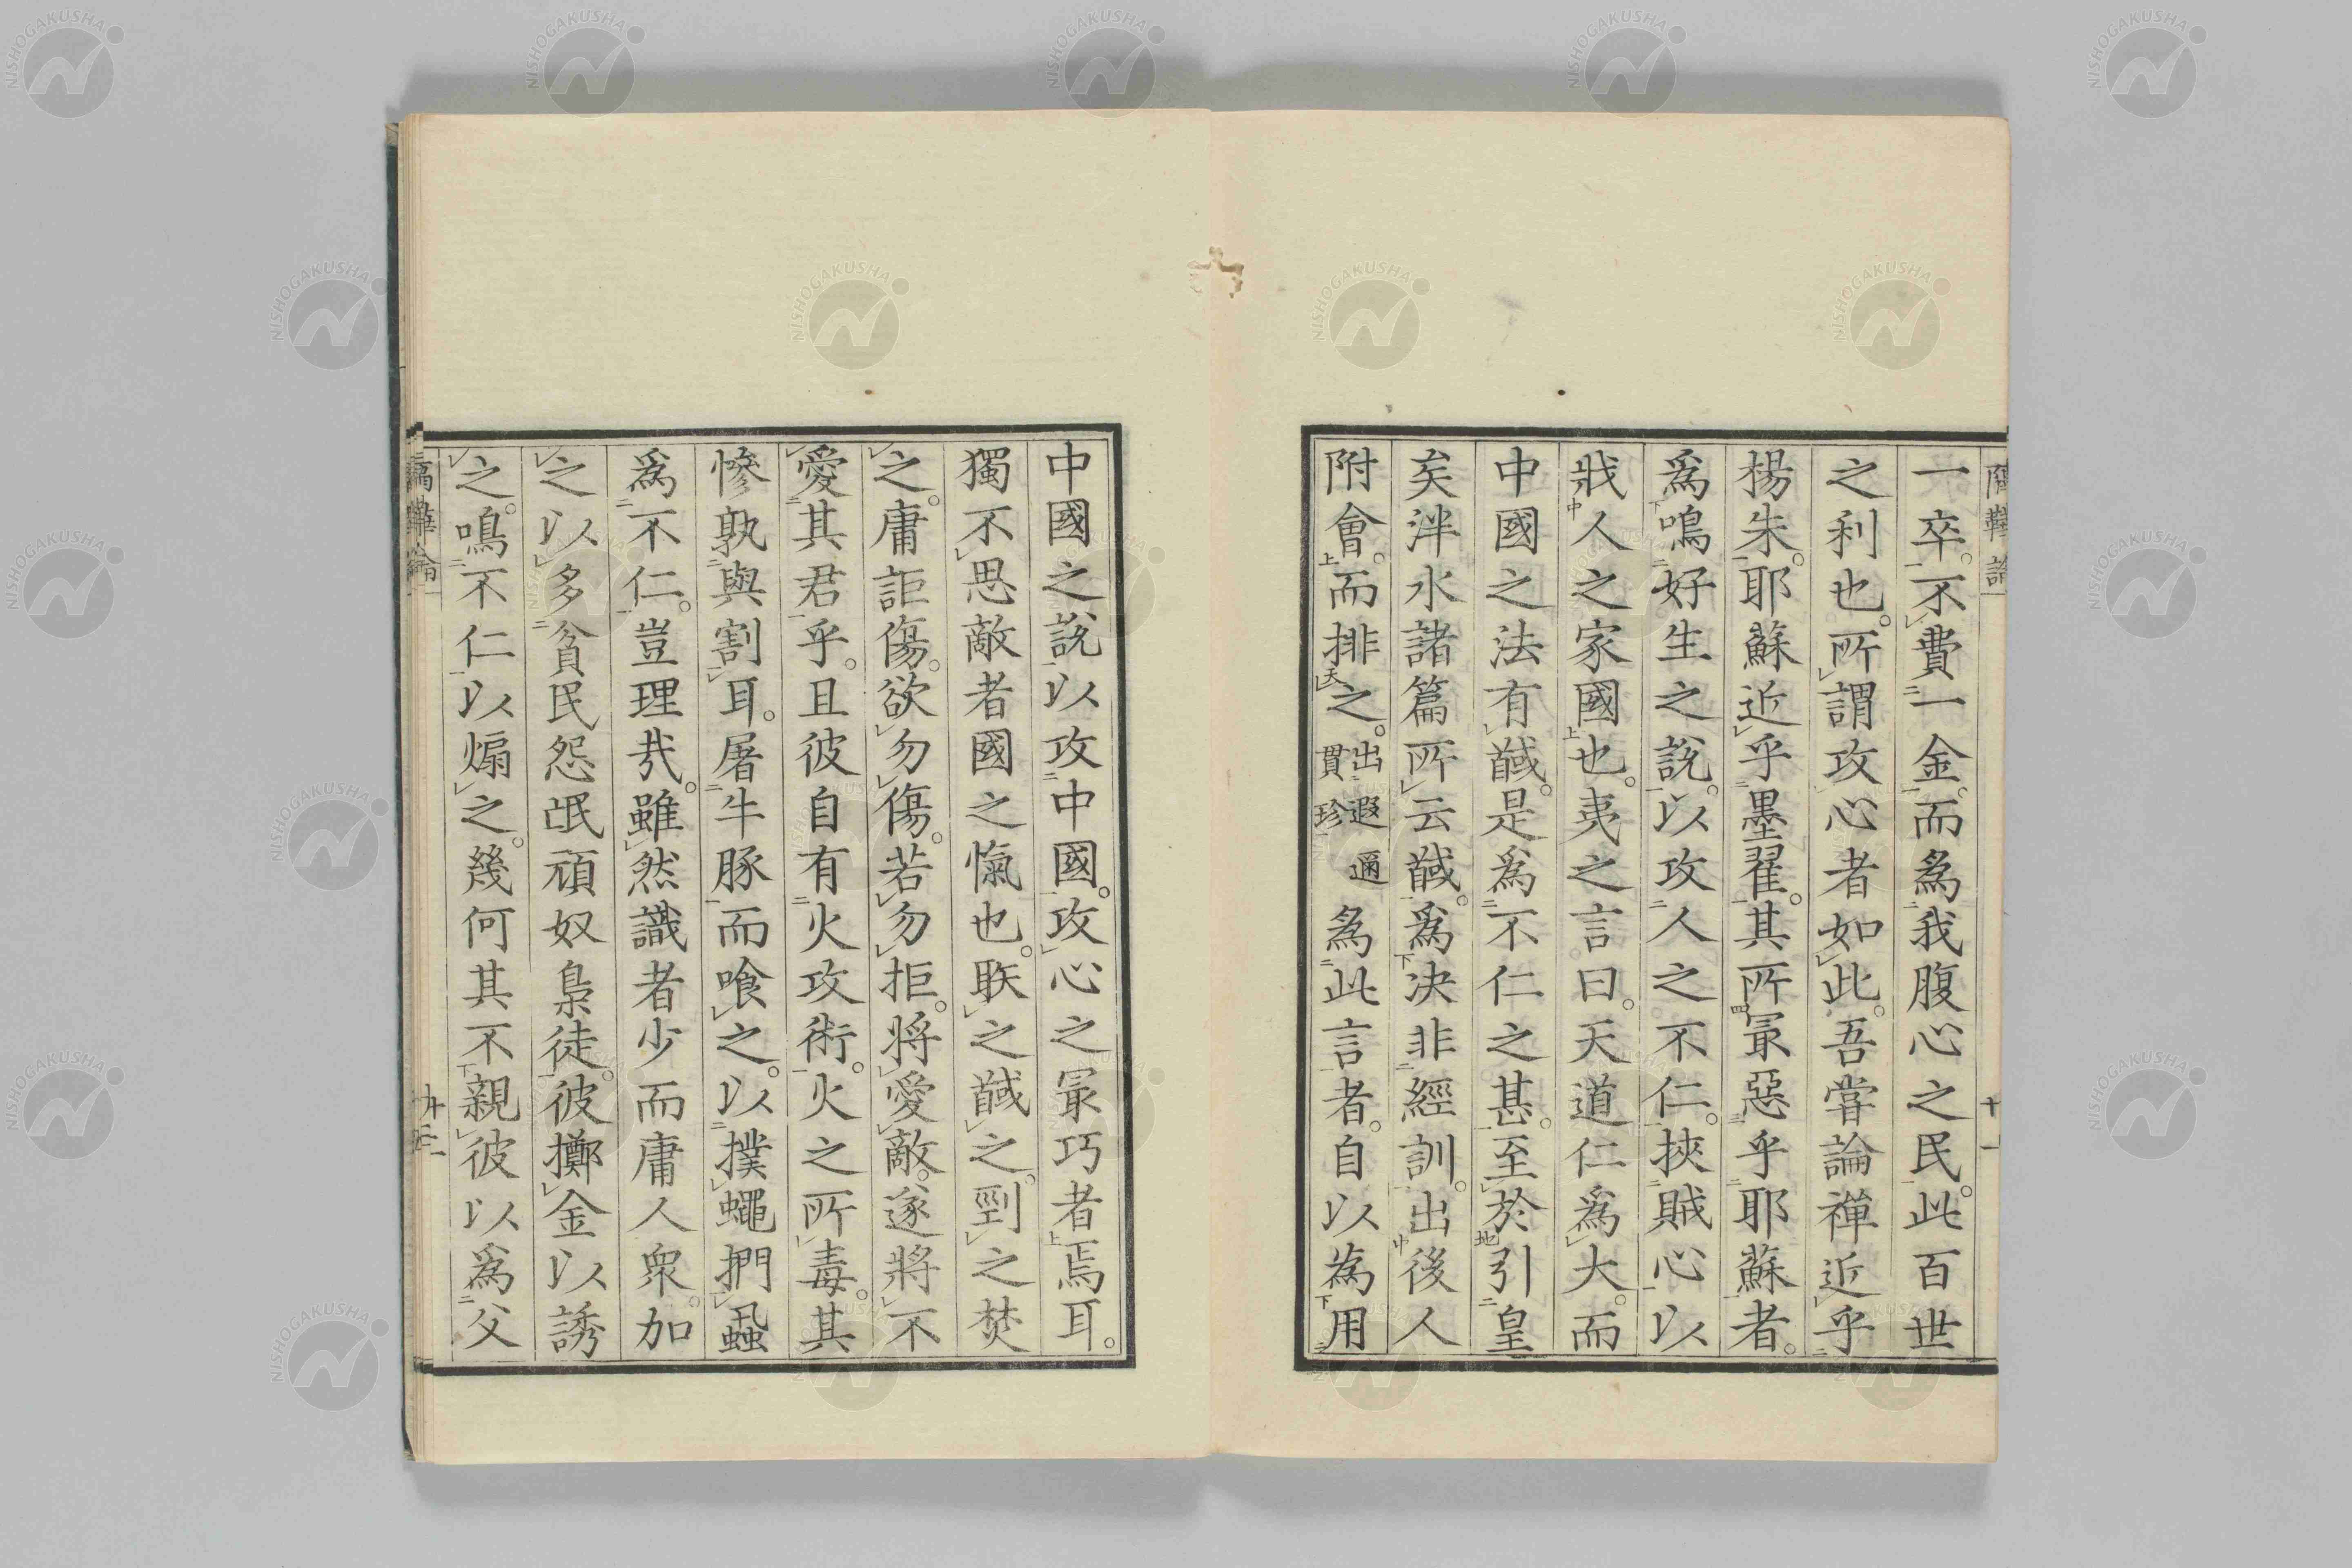 一卒。不費一金。而爲我腹心之民。此百世
之利也。所謂攻心者如此。吾嘗論禪近乎
楊朱。耶蘇近乎墨翟。其所最惡乎耶蘇者。
爲鳴好生之說。以攻人之不仁。挾賊心以
戕人之家國也。夷之言曰。天道仁爲大。而
中國之法有馘。是爲不仁之甚。至於引皇
矣泮水諸篇所云馘。爲決非經訓。出後人
附會。而排之。出遐邇貫珍爲此言者。自以為用
中國之說以攻中國。攻心之最巧者焉耳。
獨不思敵者國之愾也。聝之馘之。剄之焚
之。庸詎傷。欲勿傷。若勿拒。將愛敵。遂將不
愛其君乎。且彼自有火攻術。火之所毒。其
慘孰與割耳。屠牛豚而喰之。以撲蠅捫蝨
爲不仁。豈理哉。雖然識者少而庸人衆。加
之以多貧民怨氓頑奴梟徒。彼擲金以誘
之。鳴不仁以煽之。幾何其不親彼以爲父
NISHOGAKUSHA